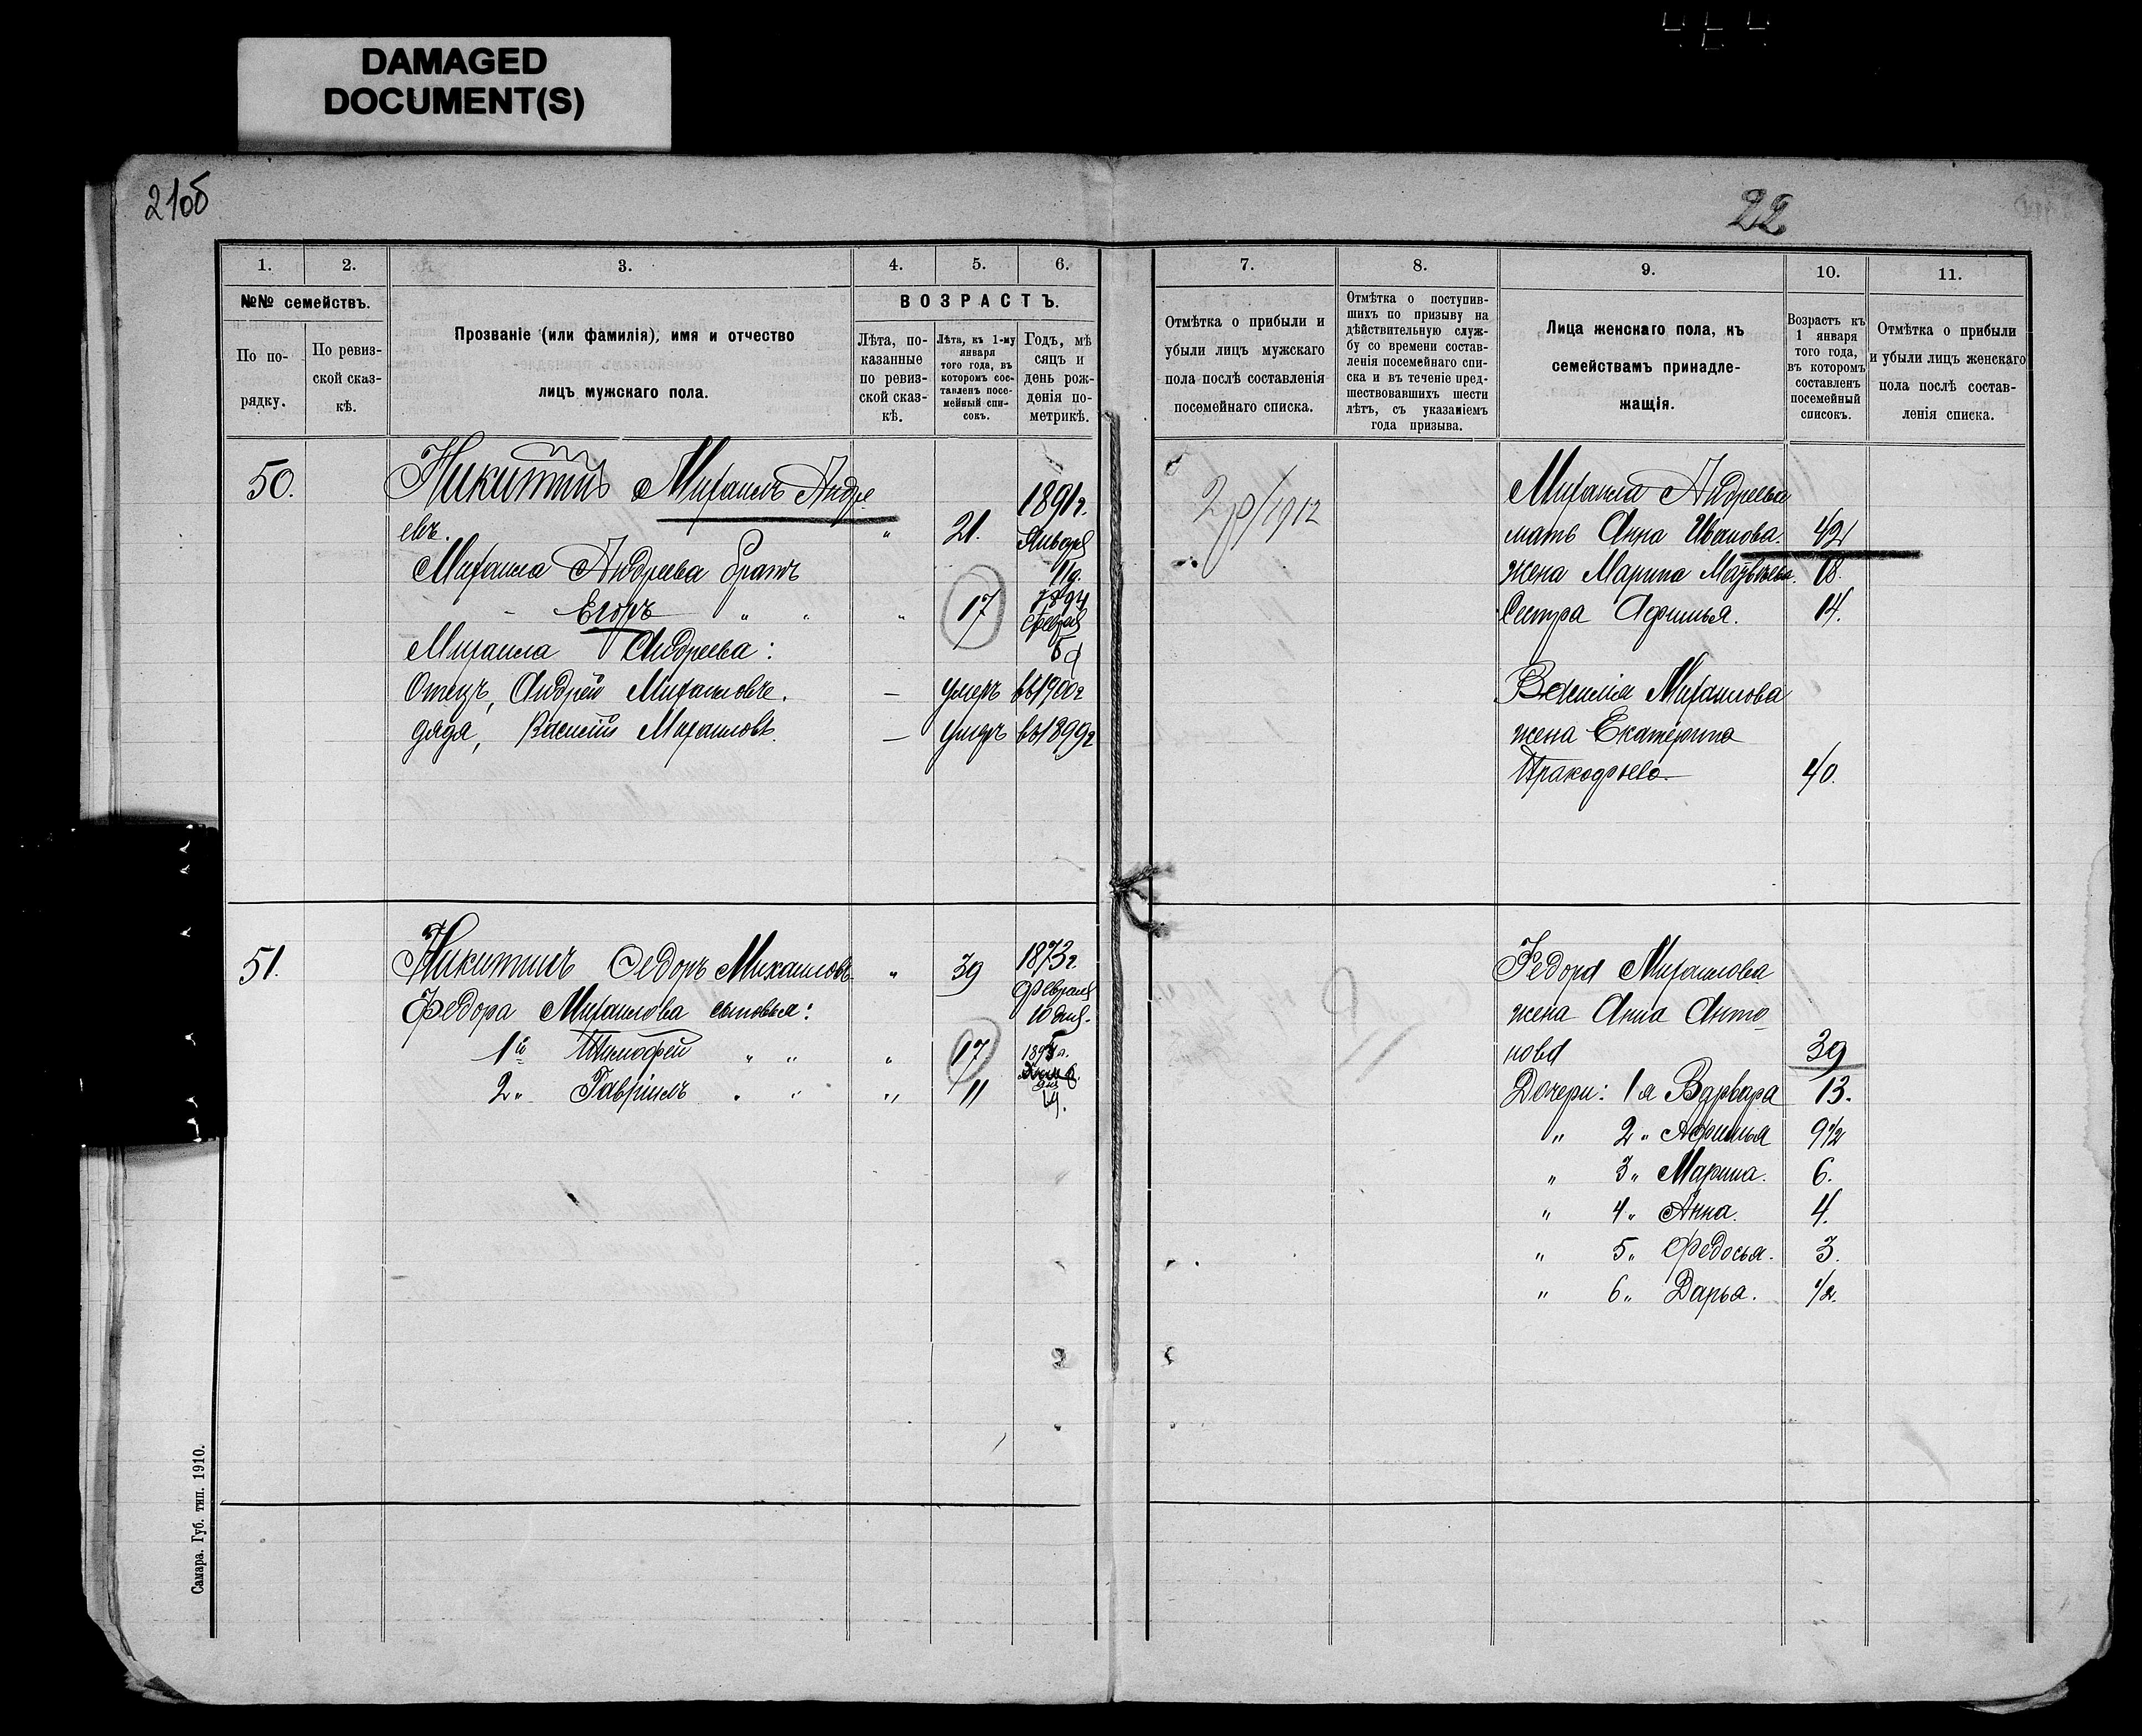 DAMAGED
DOCUMENT(S)
21об
22
1.
2.
3.
4.
5.
6.
7.
8.
9.
10.
11.
№№ семействъ.
По по-
рядку.
По ревиз-
ской сказ-
кѣ.
Прозваніе (или фамилія), имя и отчество
лицъ мужскаго пола.
ВОЗРАСТЪ.
Лѣта, по-
казанные
по ревиз-
ской сказ-
кѣ.
Лѣта, къ 1-му
января
того года, въ
которомъ сос-
тавленъ посе-
мейный спи-
сокъ.
Годъ, мѣ
сяцъ и
день рож-
денія по-
метрикѣ.
Отмѣтка о прибыли и
убыли лицъ мужскаго
пола послѣ составленія
посемейнаго списка.
Отмѣтка о поступив-
шихъ по призыву на
дѣйствительную служ-
бу со времени состав-
ленія посемейнаго спи-
ска и въ теченіе пред-
шествовавшихъ шести
лѣтъ, съ указаніемъ
года призыва.
Лица женскаго пола, къ
семействамъ принадле-
жащія.
Возрастъ къ
1 января
того года,
въ которомъ
составленъ
посемейный
списокъ.
Отмѣтка о прибыли
и убыли лицъ женскаго
пола послѣ состав-
ленія списка.
50.
Никитинъ Михаилъ Андре
евъ. " 21. 1891г. Января 11д.
Михаила Андреева братъ
Егоръ " " " 17 1894 Февраля
Михаила Андреева:
Отецъ, Андрей Михаиловъ. — умеръ въ 1900г
дядя, Василій Михаиловъ. — умеръ въ 1899г
1912
Михаила Андреева
мать Анна Иванова. 42
жена Марина Матвѣева. 18.
Сестра Афимья. 14.
Василія Михаилова
жена Екатерина
40.
51.
Никитинъ Федоръ Михаиловъ " 39 1873г.
Федора Михаилова сыновья: Февраля 10 дня.
1й Тимофей " " " 17 1895г.
2" Гавріилъ " " " 11
Федора Михаилова
жена Анна Анто
нова 39
Дочери: 1я Варвара 13.
" 2" Афимья 9½
" 3" Марина. 6.
" 4" Анна. 4.
" 5" Федосья. 3.
" 6" Дарья. ½.
Самара. Губ. тип. 1910.